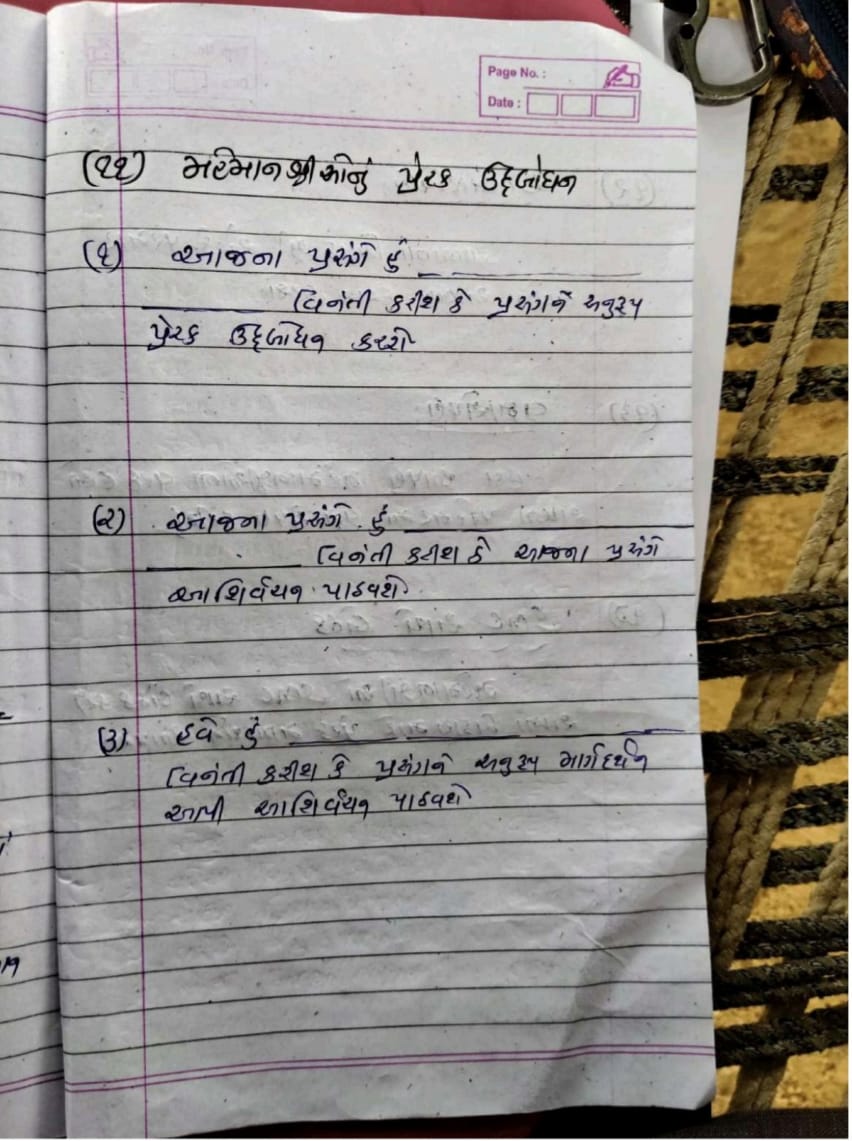 Page No. :
Date :
(૧૧) મહેમાનશ્રીઓનું પ્રેરક ઉદ્દબોધન
(૧) આજના પ્રસંગે હું _ ____________
____________ વિનંતી કરીશ કે પ્રસંગને અનુરૂપ
પ્રેરક ઉદ્દબોધન કરશે
(૨) આજના પ્રસંગે હું ____________
____________ વિનંતી કરીશ કે આજના પ્રસંગે
આશિર્વચન પાઠવશે.
(૩) હવે હું ____________
વિનંતી કરીશ કે પ્રસંગને અનુરૂપ માર્ગદર્શન
આપી આશિર્વચન પાઠવશે